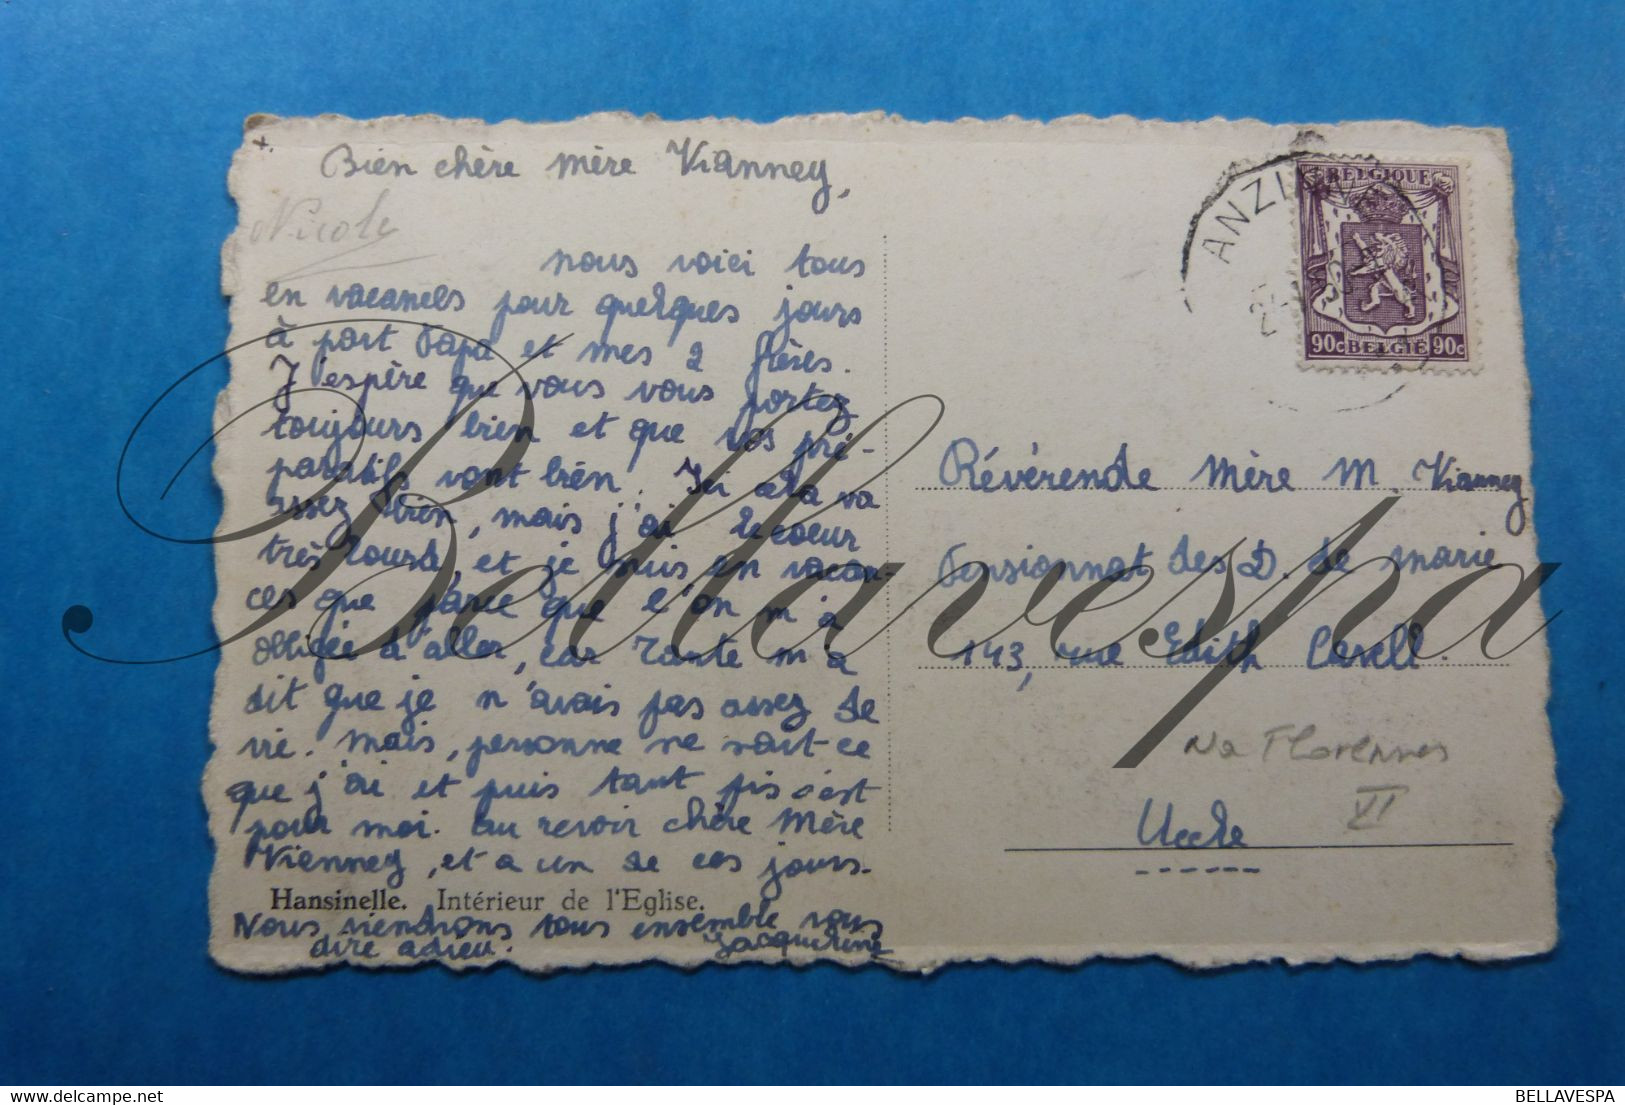 Bien chère Mère Vianney,
Nicole
nous voici tous
en vacances pour quelques jours
à part Papa et mes 2 frères.
J'espère que vous vous portez
toujours bien et que vos pré-
paratifs vont bien. Ici cela va
assez bien, mais j'ai le coeur
très lourd, et je suis en vacan-
ces que parce que l'on m'a
obligée d'aller, car Tante m'a
dit que je n'avais pas assez de
vie. Mais, personne ne sait ce
que j'ai et puis tant pis c'est
pour moi. Au revoir chère Mère
Vianney, et a un de ces jours.
Hansinelle. Intérieur de l'Eglise.
Nous viendrons tous ensemble vous
dire adieu. Jacqueline
BELGIQUE
90c BELGIE 90c
Révérende Mère M. Vianney
Pensionnat des D. de Marie
143, rue Edith Cavell.
Na Florennes
VI
Uccle
Bellavespa
BELLAVESPA